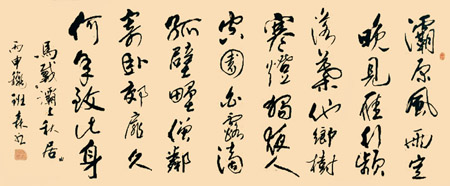 灞原風雨定
晚見雁行頻
落葉他鄉樹
寒燈獨夜人
空園白露滴
孤壁野僧鄰
寄卧郊扉久
何年致此身
馬戴灞上秋居
丙申 班森書